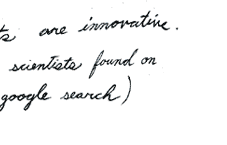 ts are innovative.
scientists found on
google search)